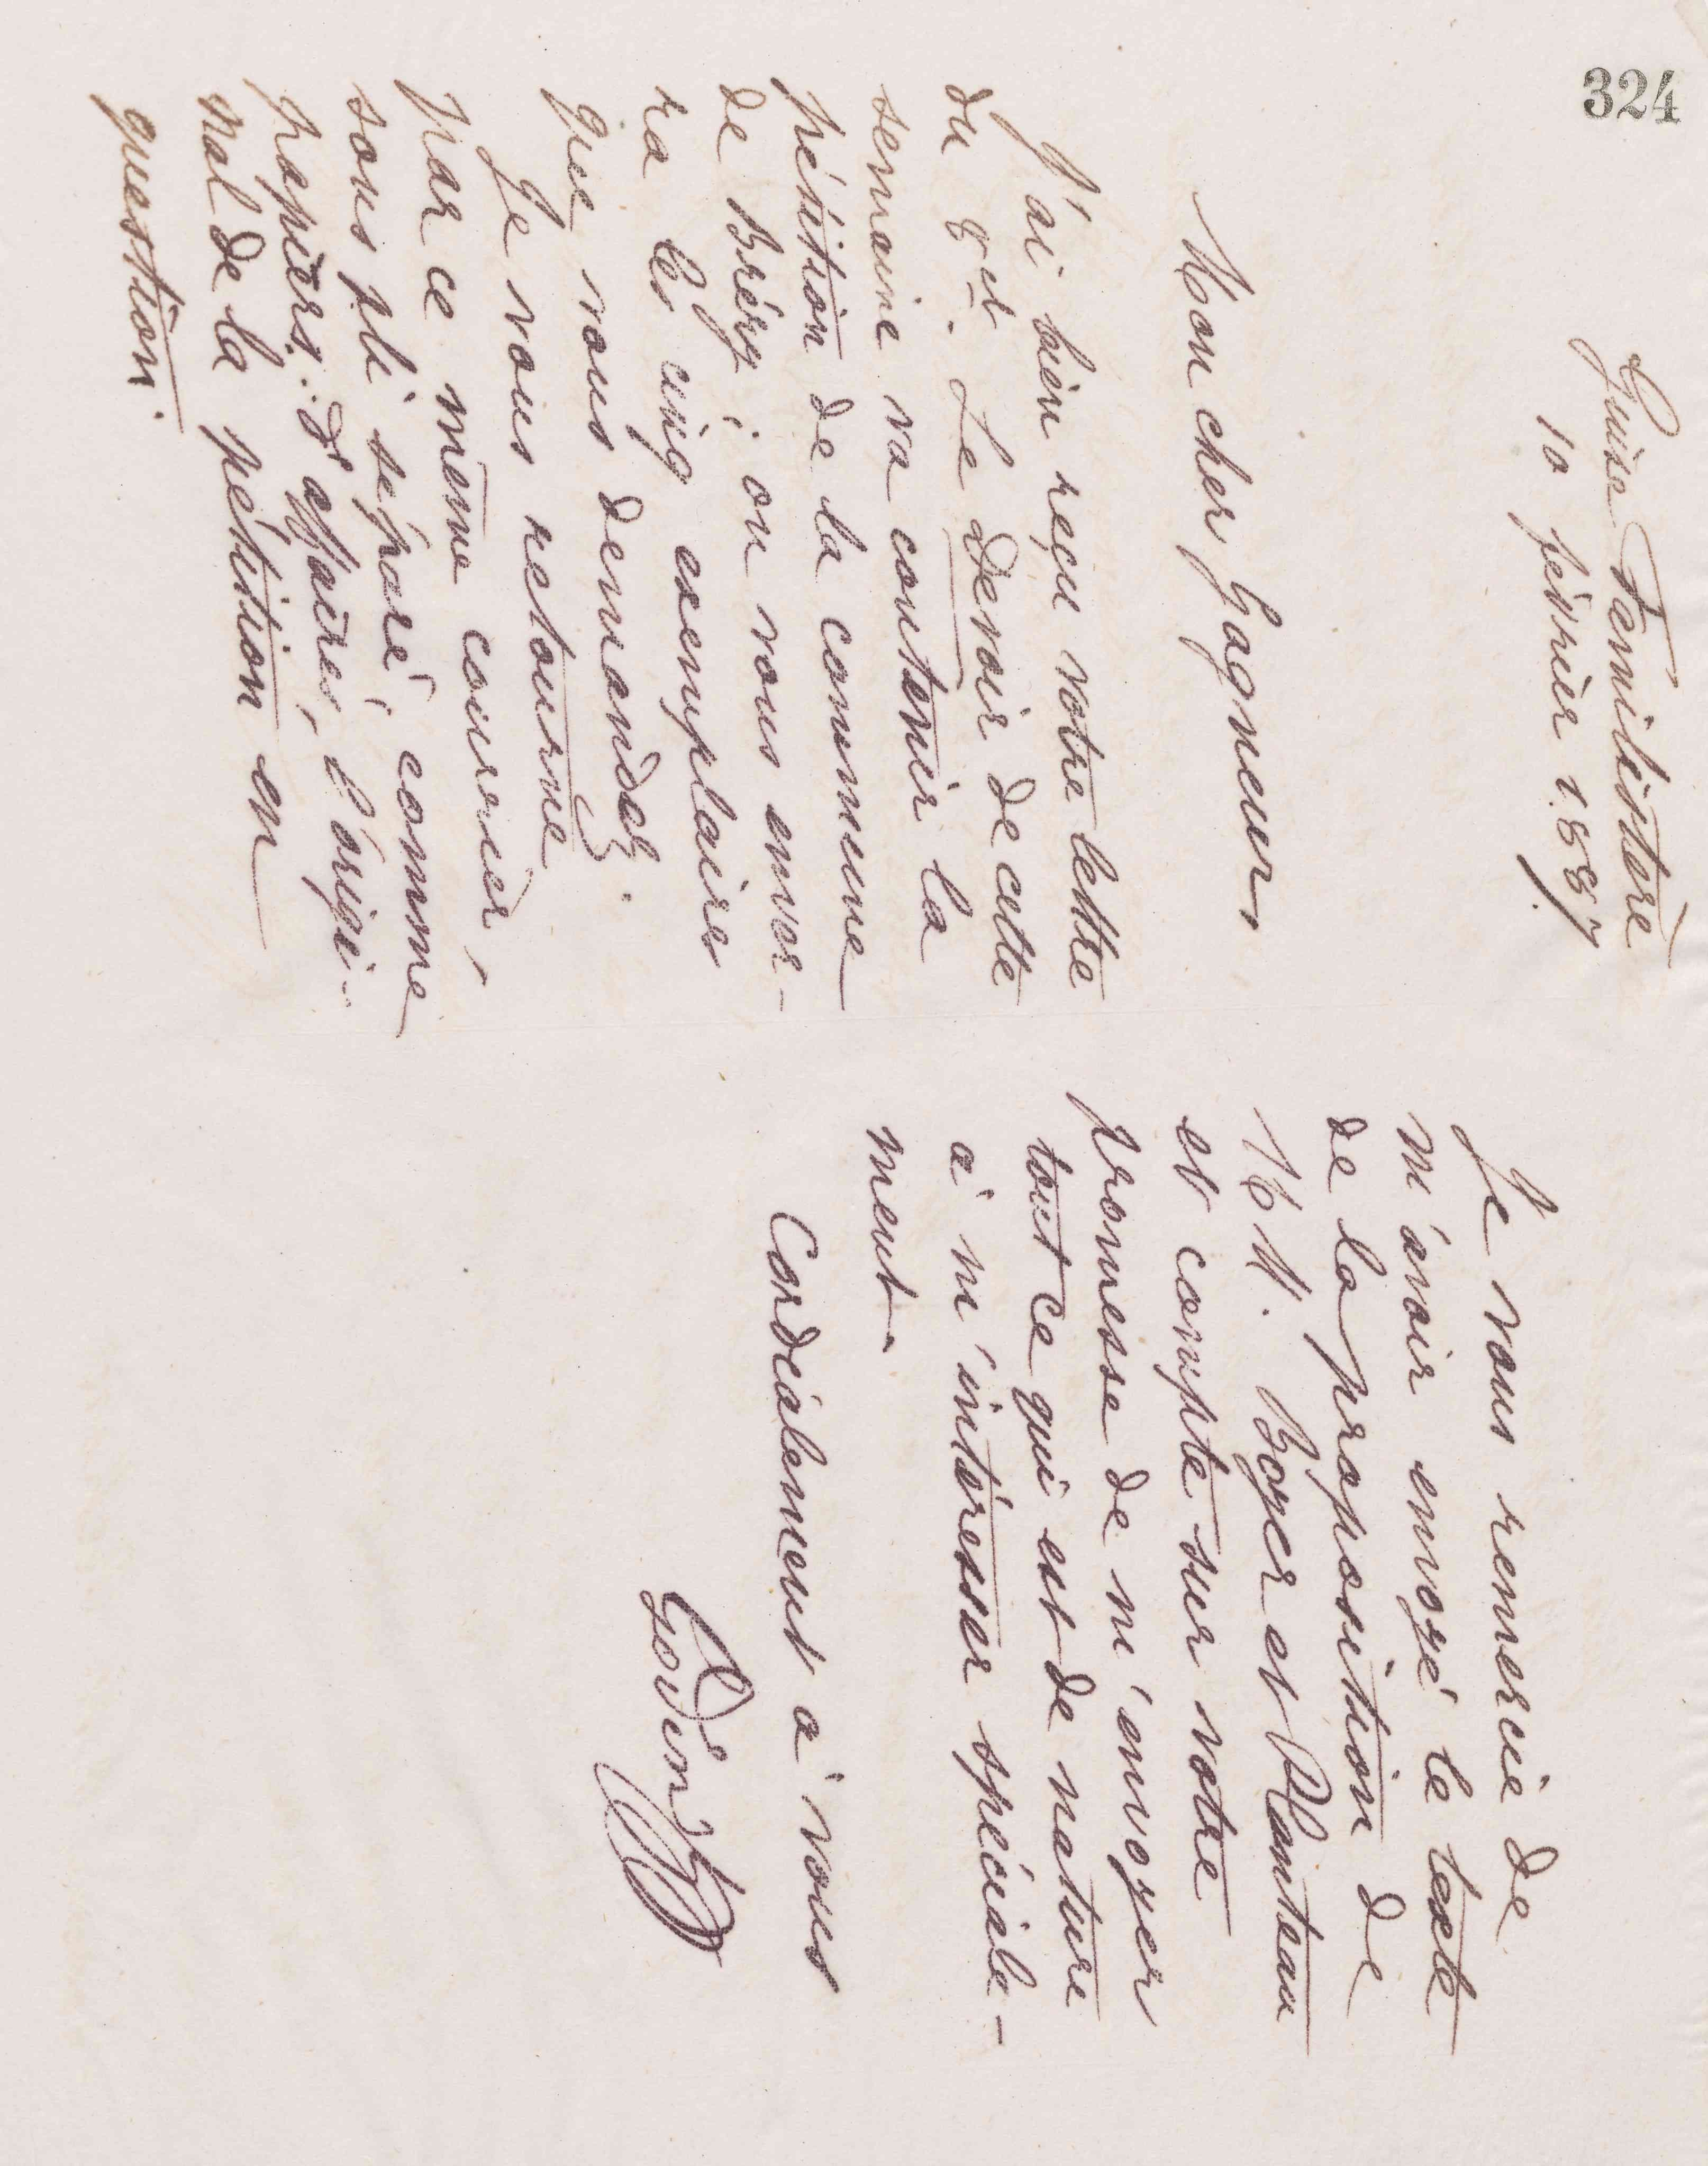 324
Guise Familistère
10 février 1887
Mon cher Gagneur,
J'ai bien reçu votre lettre
du 8 ct. Le Devoir de cette
semaine va contenir la
pétition de la commune
de Bréry ; on vous enver-
ra les cinq exemplaires
que vous demandez.
Je vous retourne
par ce même courrier,
sous pli séparé, comme
papiers d'affaires, l'origi-
nal de la pétition en
question.
Je vous remercie de
m'avoir envoyé le texte
de la proposition de
MM. Boyer et Planteau
et compte sur votre
promesse de m'envoyer
tout ce qui est de nature
à m'intéresser spéciale-
ment.
Cordialement à vous
Godin